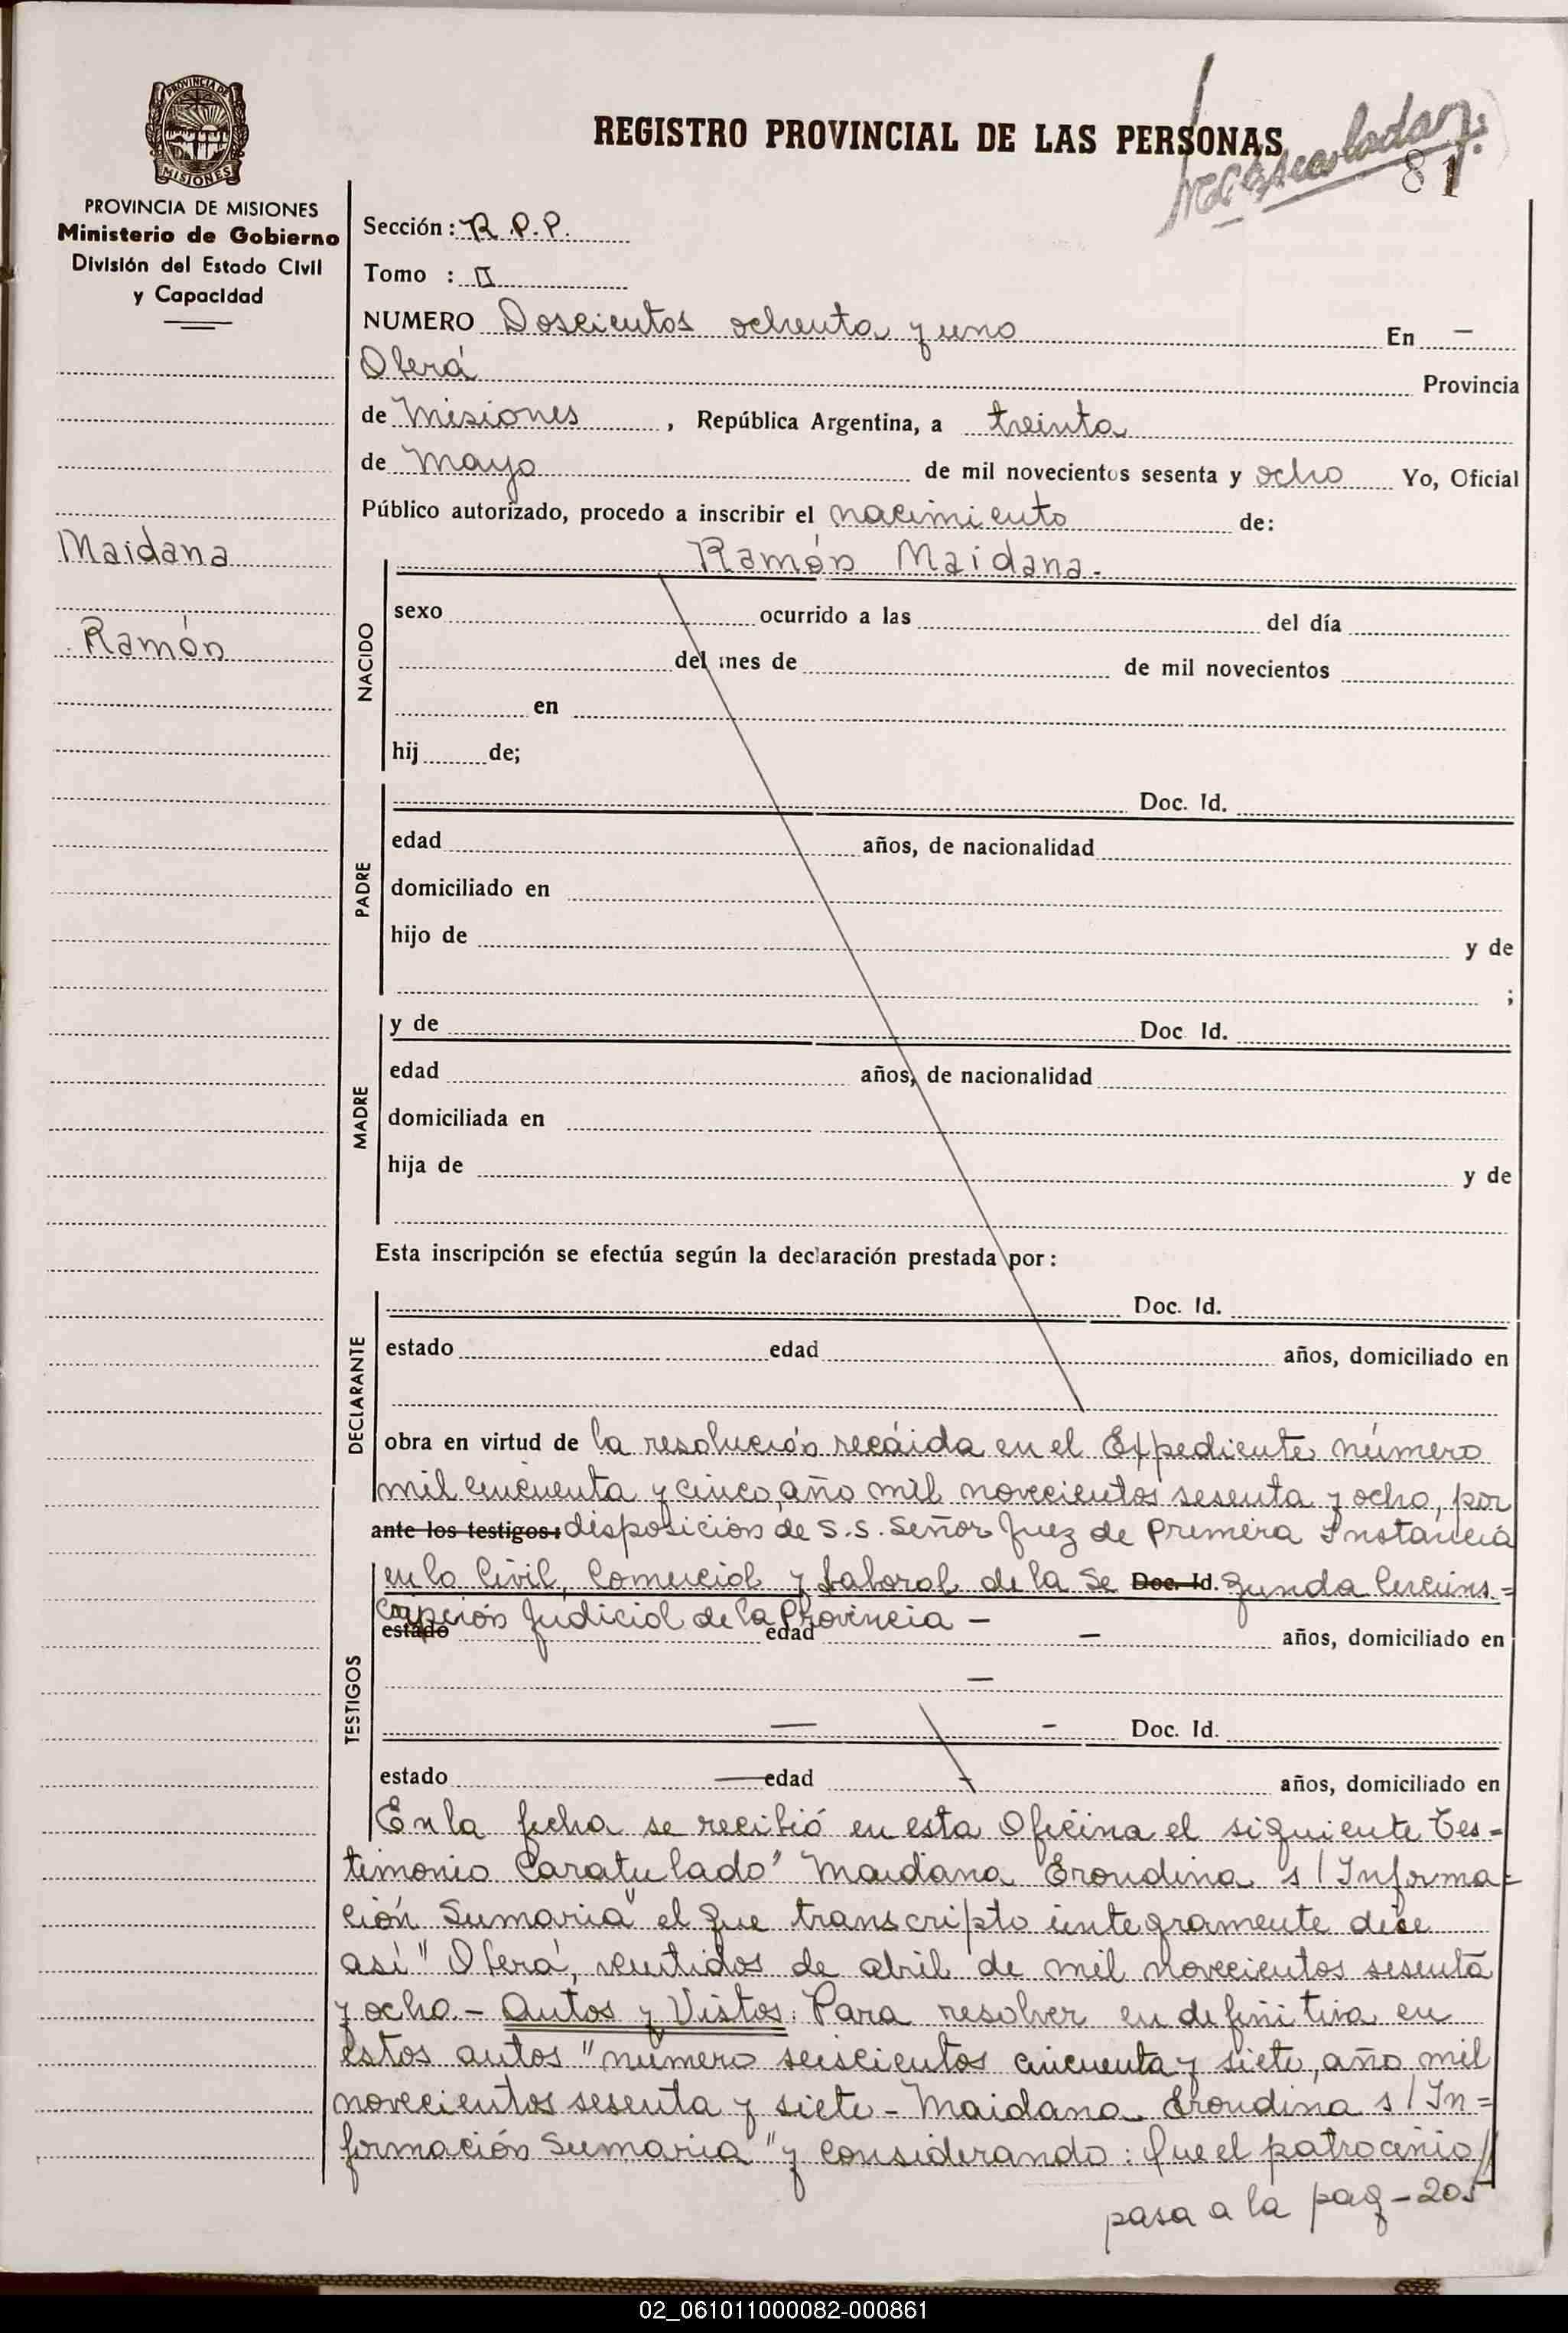 PROVINCIA DE
MISIONES
PROVINCIA DE MISIONES
Ministerio de Gobierno
División del Estado Civil
y Capacidad
Maidana
Ramón
REGISTRO PROVINCIAL DE LAS PERSONAS
81
Sección: R.P.P.
Tomo :
NUMERO Doscientos ochenta y uno En —
Oberá Provincia
de Misiones, República Argentina, a treinta
de Mayo de mil novecientos sesenta y ocho Yo, Oficial
Público autorizado, procedo a inscribir el nacimiento de:
Ramón Maidana.-
NACIDO
sexo ocurrido a las del día
del mes de de mil novecientos
en
hij de;
PADRE
Doc. Id.
edad años, de nacionalidad
domiciliado en
hijo de y de
;
MADRE
y de Doc. Id.
edad años, de nacionalidad
domiciliada en
hija de y de
Esta inscripción se efectúa según la declaración prestada por:
DECLARANTE
Doc. Id.
estado edad años, domiciliado en
obra en virtud de la resolución recáida en el Expediente número
mil cincuenta y cinco, año mil novecientos sesenta y ocho, por
ante los testigos: disposición de S.S. Señor Juez de Primera Instancia
TESTIGOS
en lo Civil, Comercial y Laboral de la Se Doc. Id. gunda Circuns=
cripción Judicial de la Provincia —
estado edad — años, domiciliado en
—
— — Doc. Id.
estado — edad — años, domiciliado en
En la fecha se recibió en esta Oficina el siguiente Tes=
timonio Caratulado" Maidana Erondina s/ Informa=
ción Sumaria" el que transcripto íntegramente dice
así" Oberá, veintidos de abril de mil novecientos sesenta
y ocho.- Autos y Vistos: Para resolver en definitiva en
estos autos "número seiscientos cincuenta y siete, año mil
novecientos sesenta y siete - Maidana Erondina s/ In=
formación Sumaria" y considerando: Que el patrocinio//
pasa a la pag - 205
02_061011000082-000861